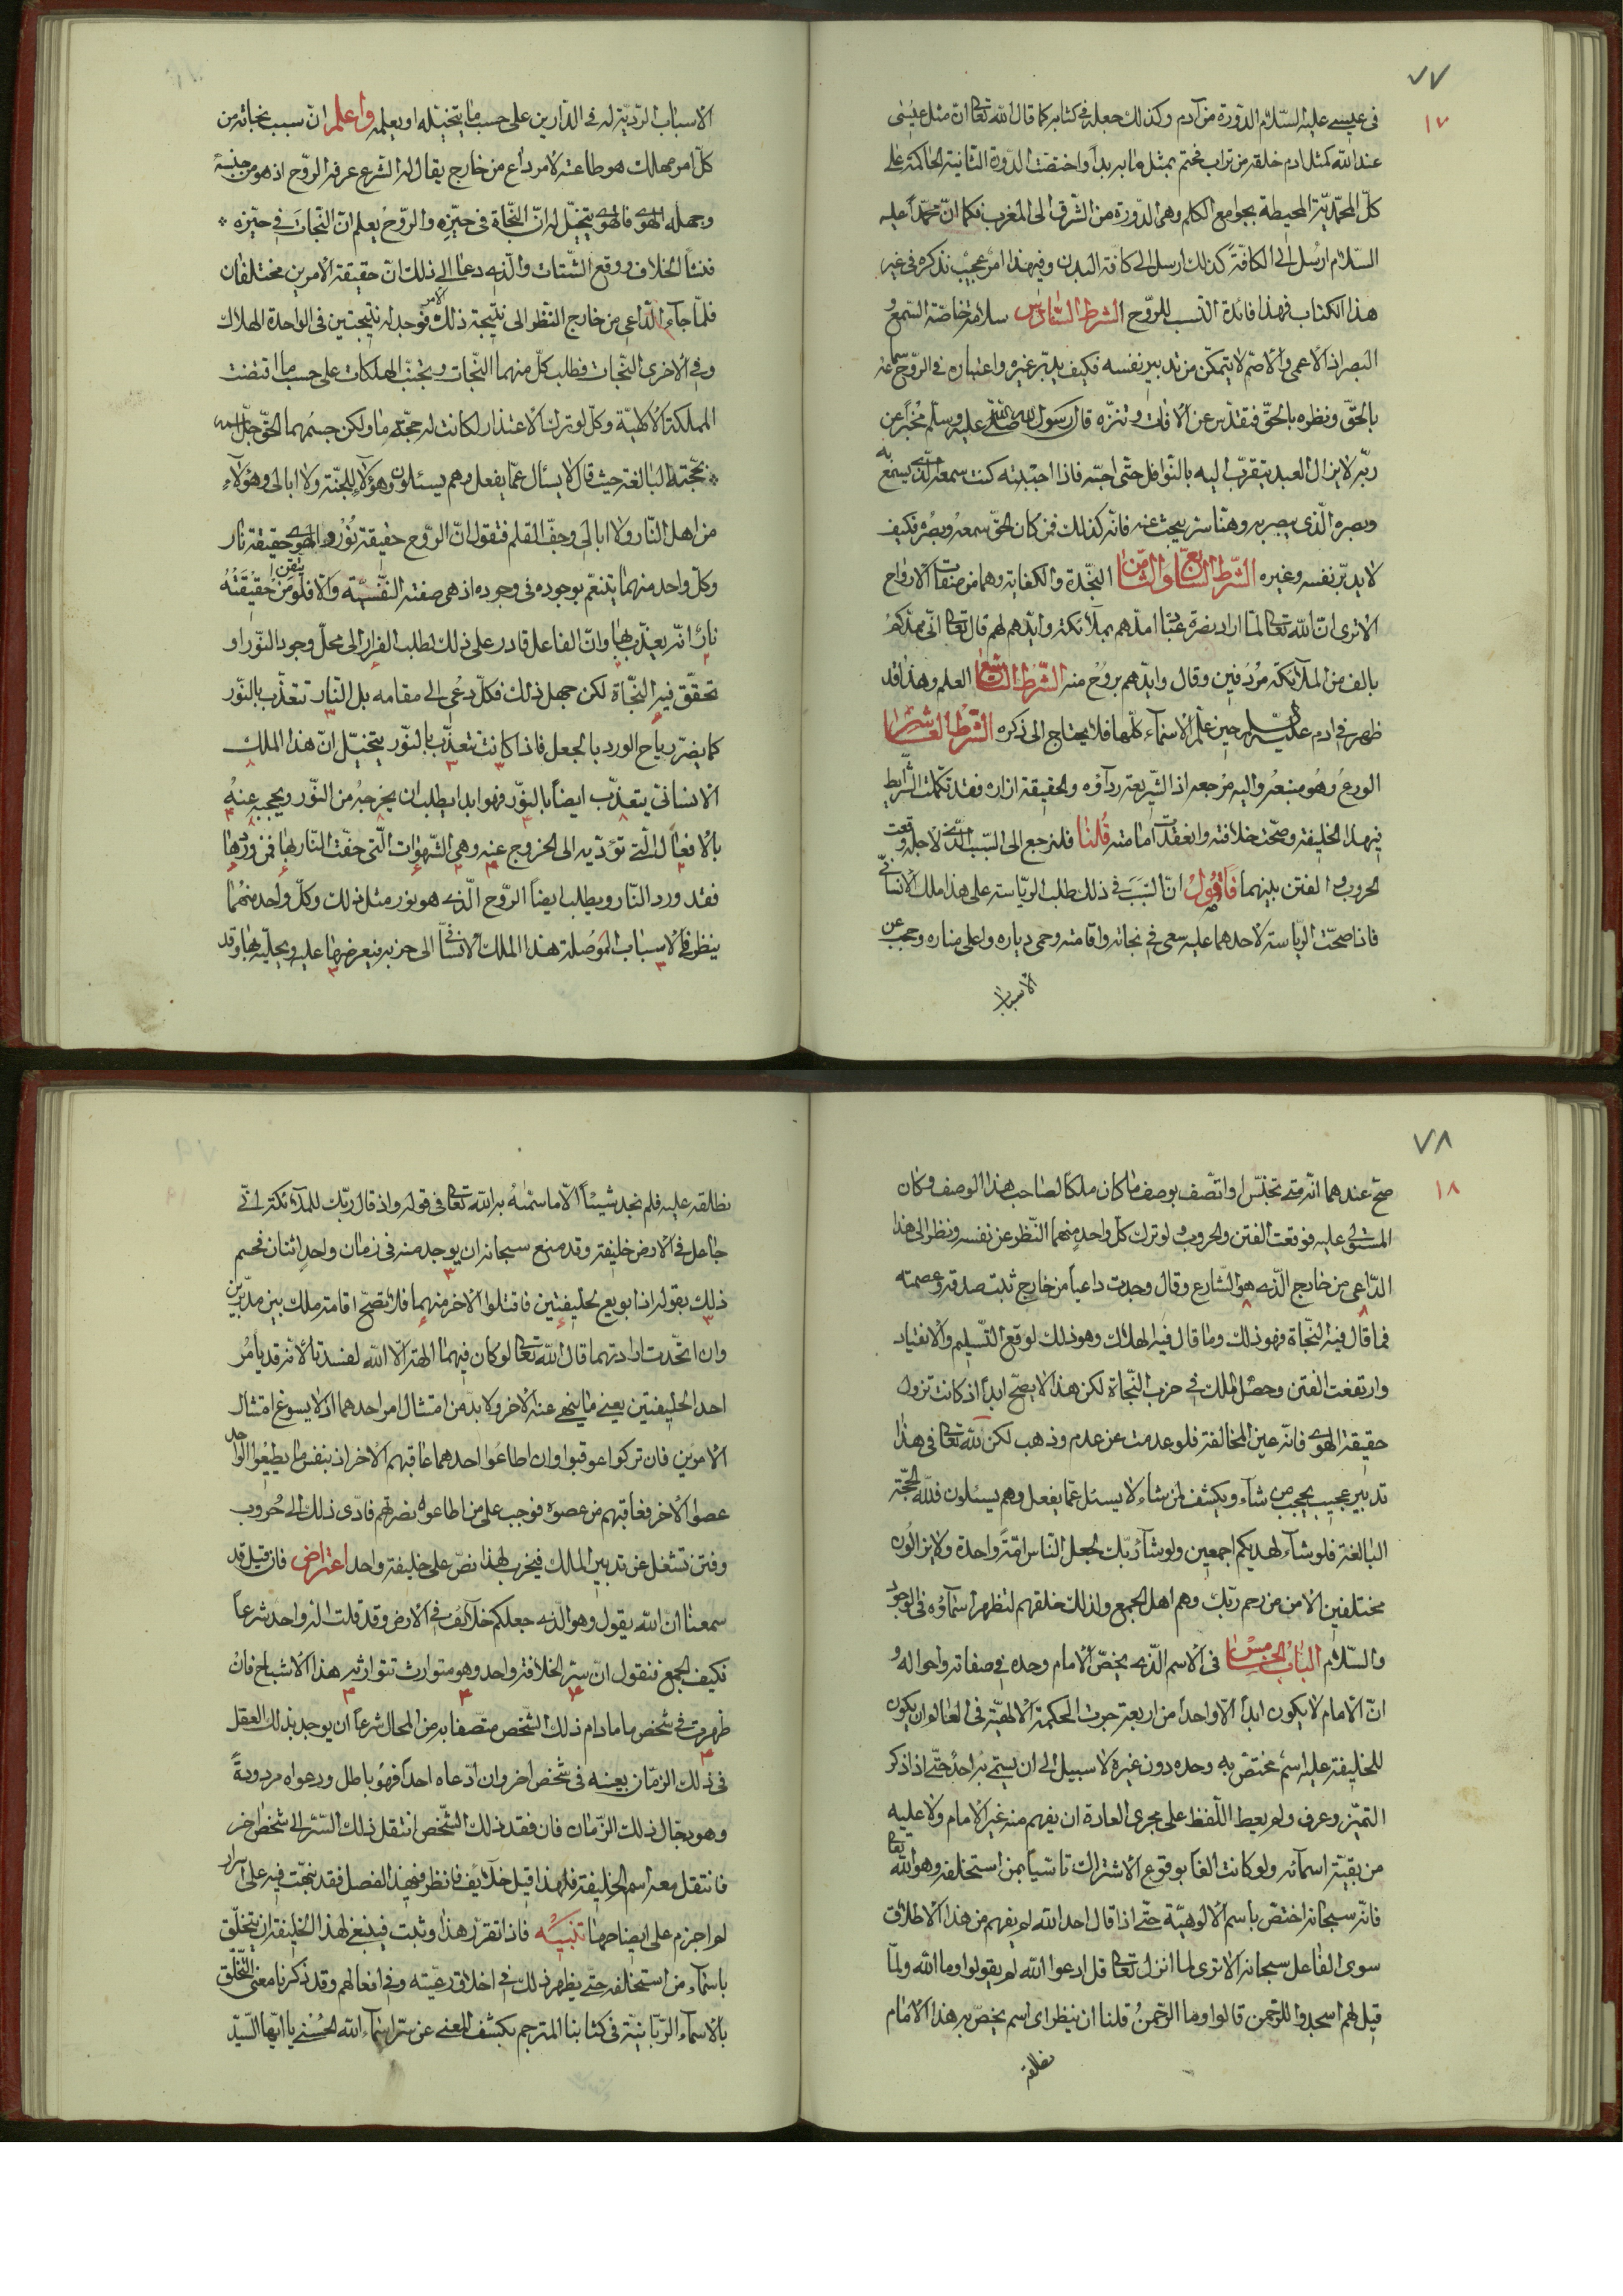 ٧٧
١٧
فى عيسى عليه السّلام الدّورة من آدم وكذلك جعله فى كتابه كما قال الله تعا ان مثل عيسى
عند الله كمثل ادم خلقه من تراب فختم بمثل ما به بدأ واختصّت الدّورة الثانية الحاكمة على
كلّ المحمّديّة المحيطة بجوامع الكلم وهى الدّورة من الشّرق الى المغرب فكما انّ محمّداً عليه
السّلام ارسل الى الكافّة كذلك ارسل الى كافة البدن وفى هذا امر عجيب نذكره فى غير
هذا الكتاب فهذا فائدة النّسب للرّوح الشرط السّادس سلامة حاسّة السّمع و
البصر اذ الاعمى والاصمّ لا يتمكّن من تدبير نفسه فكيف يدبّر غيره واعتباره فى الرّوح سماعه
بالحقّ ونظره بالحقّ فتقدّس عن الآفات وتنزّه قال رسول الله صلى الله عليه وسلّم مخبراً عن
ربّه لا يزال العبد يتقرّب اليه بالنّوافل حتّى احبّه فاذا احببته كنت سمعه الّذى يسمع به
وبصره الّذى يبصر به وهنا سرّ يبحث عنه فانّه كذلك فمن كان الحقّ سمعه وبصره فكيف
لا يدبّر نفسه وغيره الشّرط السّابع والثّامن النّجدة والكفاية وهما من صفات الارواح
الا ترى ان الله تعالى لمّا اراد نصرة عبّاده امدّهم بملائكته وايّدهم لهم قال تعالى انّى ممدّكم
بالف من الملائكة مردفين وقال وايّدهم بروح منه الشّرط التّاسع العلم وهذا قد
ظهر فى ادم عليه السّلم حين علّم الاسماء كلّها فلا يحتاج الى ذكره الشّرط العاشر
الورع وهو منبعه واليه مرجعه اذ الشّريعة ردآؤه والحقيقة ازاره فقد تكمّلت الشّرايط
فى هذا الخليفة وصحّت خلافته وانعقدت امامته قلنا فلنرجع الى السّبب الّذى لاجله وقعت
الحروب و الفتن بينهما فاقول انّ السّبب فى ذلك طلب الرّياسة على هذا ملك الانسانىّ
فاذا صحّت الرّياسة لاحدهما عليه سعى فى نجاته واقامته وحمى دياره واعلى مناره وحجب عن
الاسباب
الاسباب الرّديّة له فى الدّارين على حسب ما يتخيّله او يعلمه واعلم ان سبب نجاته من
كلّ امر مهلك هو طاعته لامر داع من خارج يقال له الشرع عرفه الرّوح اذ هو من جنسه
وجهله الهوى فالهوى يتخيّل له انّ النّجاة فى حيّزه والرّوح يعلم انّ النّجات فى حيّزه
فنشأ الخلاف ووقع الشّتات والّذى دعا الى ذلك انّ حقيقة الامرين مختلفان
فلمّا جآء الدّاعى من خارج النّظر الى نتيجة ذلك الامر فوجد له نتيجتين فى الواحدة الهلاك
وفى الاخرى النّجات فطلب كلّ منهما النّجات ويجتنب الهلكات على حسب ما اقتضت
المملكة الالهيّة وكلّ لو ترك الاعتذار لكانت له حجّة ما ولكن جسمهما الحقّ جلّ اسمه
بحجّته البالغة حيث قال لا يسأل عمّا يفعل وهم يسئلون وهؤلاء للجنّة ولا ابالى وهؤلاء
من اهل النّار ولا ابالى وجفّ القلم فنقول انّ الرّوح حقيقة نور والهوى حقيقة نار
وكلّ واحد منهما يتنعّم بوجوده فى وجوده اذ هى صفته النّفسيّة والّا فلو تيقّن من حقيقته
نار انّه يعذّب بها وانّ الفاعل قادر على ذلك لطلب الفرار الى محلّ وجود النّور او
تحقّق فيه النّجاة لكن جهل ذلك فكلّ دعى الى مقامه بل النّار تتعذّب بالنّور
كما يضرّ رياح الورد بالجعل فاذا كانت تعذّب بالنّور يتخيّل انّ هذا الملك
الانسانىّ يتعذّب ايضاً بالنّور فهو ابدا يطلب ان يخرجه من النّور ويحجبه عنه
بالافعال الّتى تؤدّيه الى الخروج عنه وهى الشّهوات الّتى حفّت النّار بها فمن وردها
فقد ورد النّار ويطلب ايضاً الرّوح الّذى هو نور مثل ذلك وكلّ واحد منهما
ينظر فى الاسباب الموصلة هذا الملك الانسانى الى حزبه فيعرضها عليه ويحلّيه بها وقد
٧٨
١٨
صحّ عندهما انّه متى تجنّس او اتّصف بوصف ما كان ملكا لصاحب هذا الوصف وكان
المستولى عليه فوقعت الفتن والحروب ولو ترك كلّ واحد منهما النّظر عن نفسه ونظر الى هذا
الدّاعى من خارج الّذى هو الشّارع وقال وجدت داعياً من خارج ثبت صدقه وعصمته
فما قال فيه النّجاة فهو ذلك وما قال فيه الهلاك وهو ذلك لوقع التّسليم والانقياد
وارتفعت الفتن وحصل الملك فى حزب النّجاة لكن هذا لا يصحّ ابداً اذ كانت تزول
حقيقة الهوى فانّه عين المخالفة فلو عدمت عن عدم وذهب لكن لله تعا فى هذا
تدبير عجيب يحجب من شآء ويكشف لمن شاء لا يسئل عمّا يفعل وهم يسئلون فللّه الحجّة
البالغة فلو شاء لهديكم اجمعين ولو شآء ربّك لجعل النّاس امّةً واحدة ولا يزالون
مختلفين الا من رحم ربّك وهم اهل الجمع ولذلك خلقهم لتظهر اسمآؤه فى الوجود
والسّلام الباب الخامس فى الاسم الّذى يخصّ الامام وحده وفى صفاته واحواله و
انّ الامام لا يكون ابدًا الّا واحداً من اربعة جرت الحكمة الالهيّة فى العالم ان يكون
للخليفة عليه اسم مختصّ به وحده دون غيره لا سبيل الى ان يتسمّى به احد حتّى اذا ذكر
التميّز وعرف ولم يعط اللّفظ على مجرى العادة ان يفهم منه غير الامام ولا عليه
من بقيّة اسمآئه ولو كانت الفاً بوقوع الاشتراك تأسّياً بمن استخلفه وهو الله تعا
فانّه سبحانه اختصّ باسم الالوهيّة حتّى اذا قال احد الله لم يفهم من هذا الاطلاق
سوى الفاعل سبحانه الا ترى لما انزل تعالى قل ادعوا الله لم يقولوا وما الله ولمّا
قيل لهم اسجدوا للرّحمن قالوا وما الرّحمن قلنا ان ينظر اى اسم يخصّ به هذا الامام
نطلقه
نطلقه عليه فلم نجد شيئاً الّا ما سمّته به الله تعالى فى قوله واذ قال ربّك للملآئكة انّى
جاعل فى الارض خليفة وقد منع سبحانه ان يوجد منه فى زمان واحد اثنان فحسم
ذلك بقوله اذا بويع لخليفتين فاقتلوا الاخر منهما فلا تصحّ اقامة ملك بين مدبّرين
وان اتّحدت ارادتهما قال الله تعا لو كان فيهما الهة الّا الله لفسدتا لانّه قد يأمر
احد الخليفتين يعنى ما ينهى عنه الاخر ولا بدّ من امتثال امر احدهما اذ لا يسوغ امتثال
الامرين فان تركوا عوقبوا وان اطاعوا احدهما عاقبهم الاخر اذ بنفس ما يطيعوا الواحد
عصوا الاخر فعاقبهم من عصوه فوجب على من اطاعوه نصرتهم فادّى ذلك الى حروب
وفتن تشغل عن تدبير الممالك فيخرب لهذا نصّ على خليفة واحد اعتراض فان قيل قد
سمعنا انّ الله يقول وهو الّذى جعلكم خلآئف فى الارض وقد قلت انّه واحد شرعاً
فكيف الجمع فنقول انّ سرّ الخلافة واحد وهو متوارث تتوارثه هذا الاشباح فان
ظهرت فى شخص ما مادام ذلك الشّخص متّصفا به من المحال شرعاً ان يوجد بذلك العقل
فى ذلك الزمّان بعينه فى شخص اخر وان ادّعاه احد فهو باطل ودعواه مردودة
وهو دجّال ذلك الزّمان فان فقد ذلك الشّخص انتقل ذلك السّرّ الى شخص اخر
فانتقل معه اسم الخليفة فلهذا قيل خلآئف فانظر فى هذا الفصل فقد نبّهت فيه على اسرار
لو اجزم على ايضاحها تنبيه فاذا تقرّر هذا وثبت فينبغى لهذا الخليفة ان يتخلّق
باسماء من استخلفه حتّى يظهر ذلك فى اخلاق رعيّته وفى افعالهم وقد ذكرنا معنى التّخلّق
بالاسماء الرّبّانيّة فى كتابنا المترجم بكشف المعنى عن سرّ اسماء الله الحسنى يا ايّها السّيّد